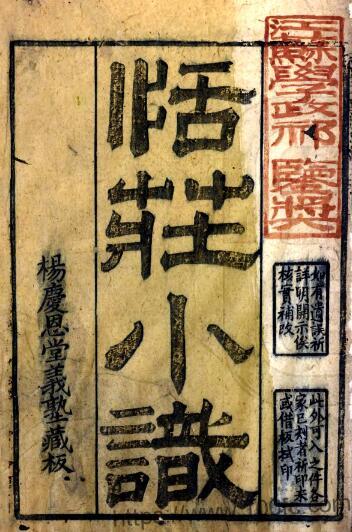 江蘇學政祁鑒奬
如有遺誤祈
詳明開示俟
核實補改
此外可入之件各
家已刻者祈印來
或借板拭印
恬莊小識
楊慶恩堂義塾藏板